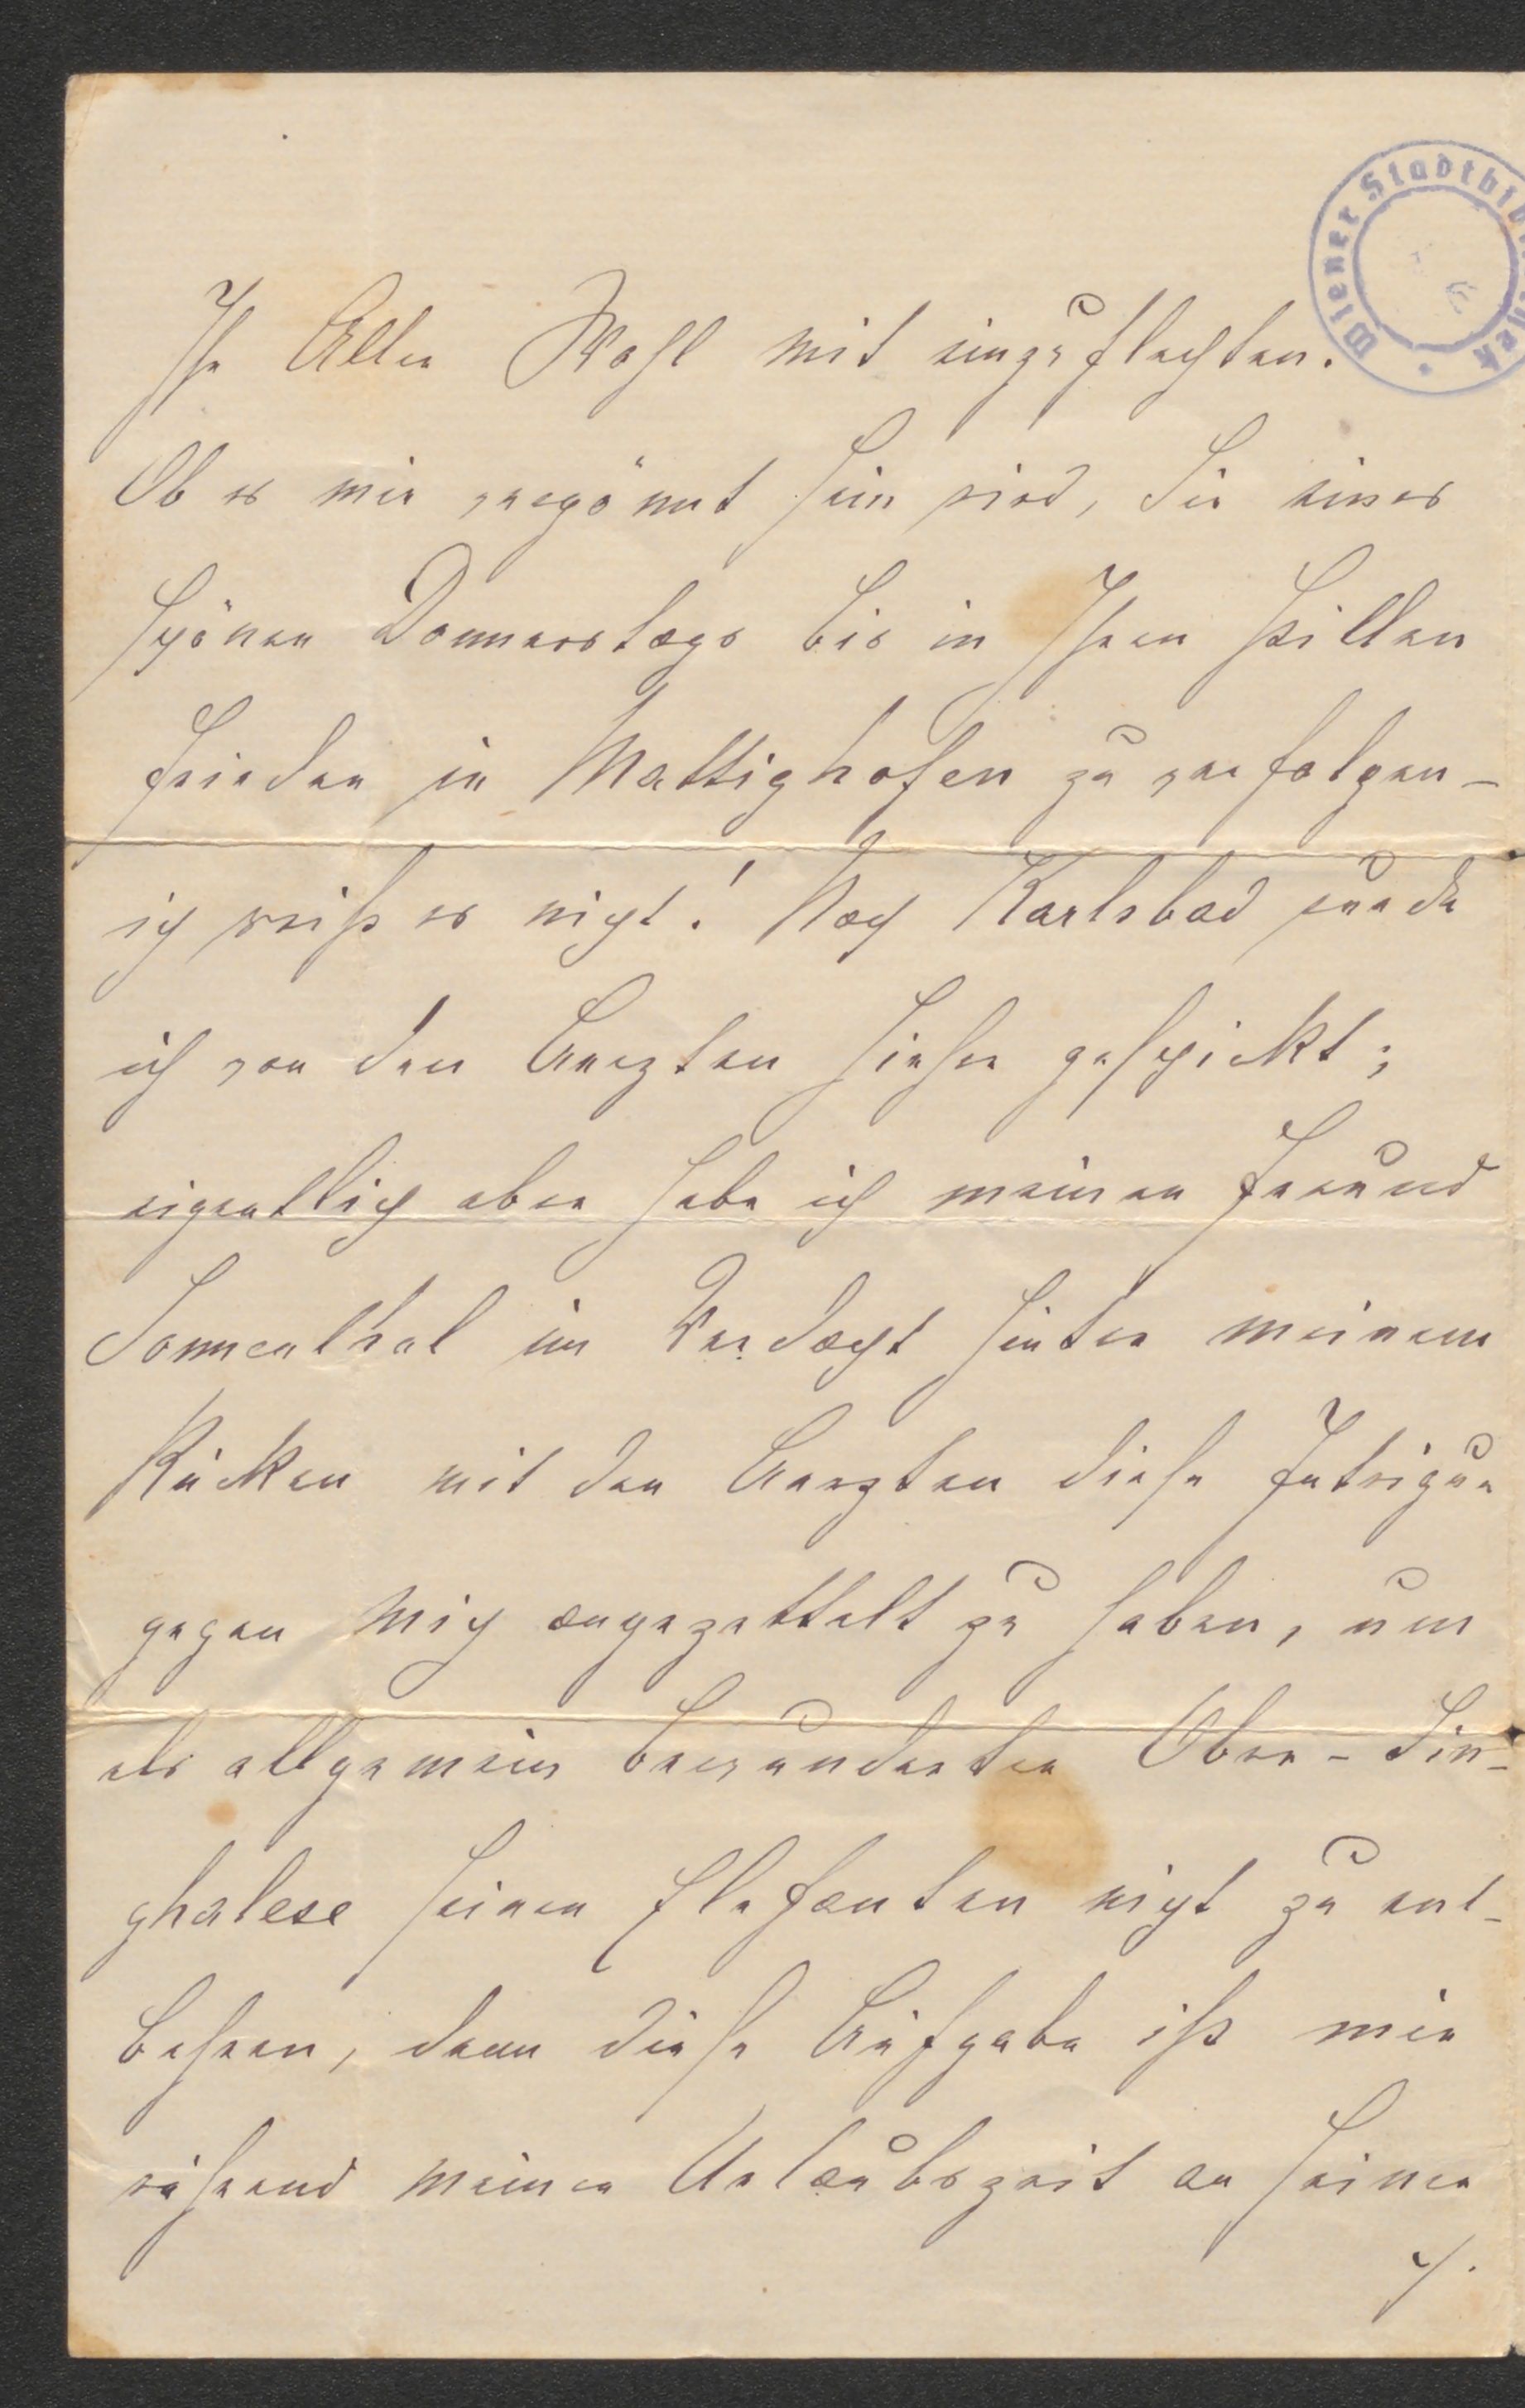 Wiener Stadtbibliothek
Ihr Aller Wohl mit einzuflechten.
Ob es mir vergönnt sein wird, Sie eines
schönen Donnerstags bis in Ihren stillen
Frieden in Mattighofen zu verfolgen –
ich weiß es nicht! Nach Karlsbad wurde
ich von den Aerzten hieher geschickt;
eigentlich aber habe ich meinen Freund
Sonnenthal im Verdacht hinter meinem
Rücken mit den Aerzten diese Intrigue
gegen mich angezettelt zu haben, um
als allgemein bewunderter Ober-Sin-
ghalese seinen Elefanten nicht zu ent-
behren, denn diese Aufgabe ist mir
während meiner Urlaubszeit an seiner
./.